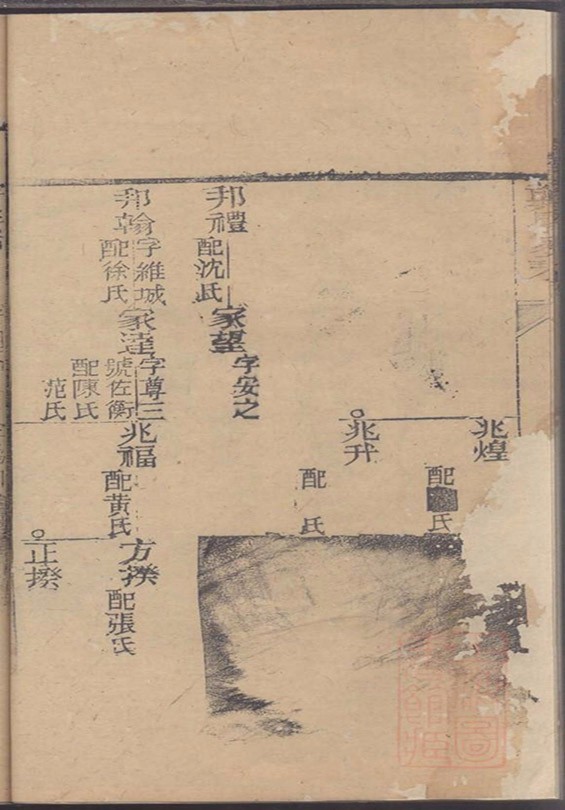 兆煌
配
氏
兆升
配
氏
邦禮
配沈氏
家望
字安之
邦翰
字維城
配徐氏
家達
字尊三
號佐衡
配陳氏
范氏
兆福
配黃氏
方揆
配張氏
正揆